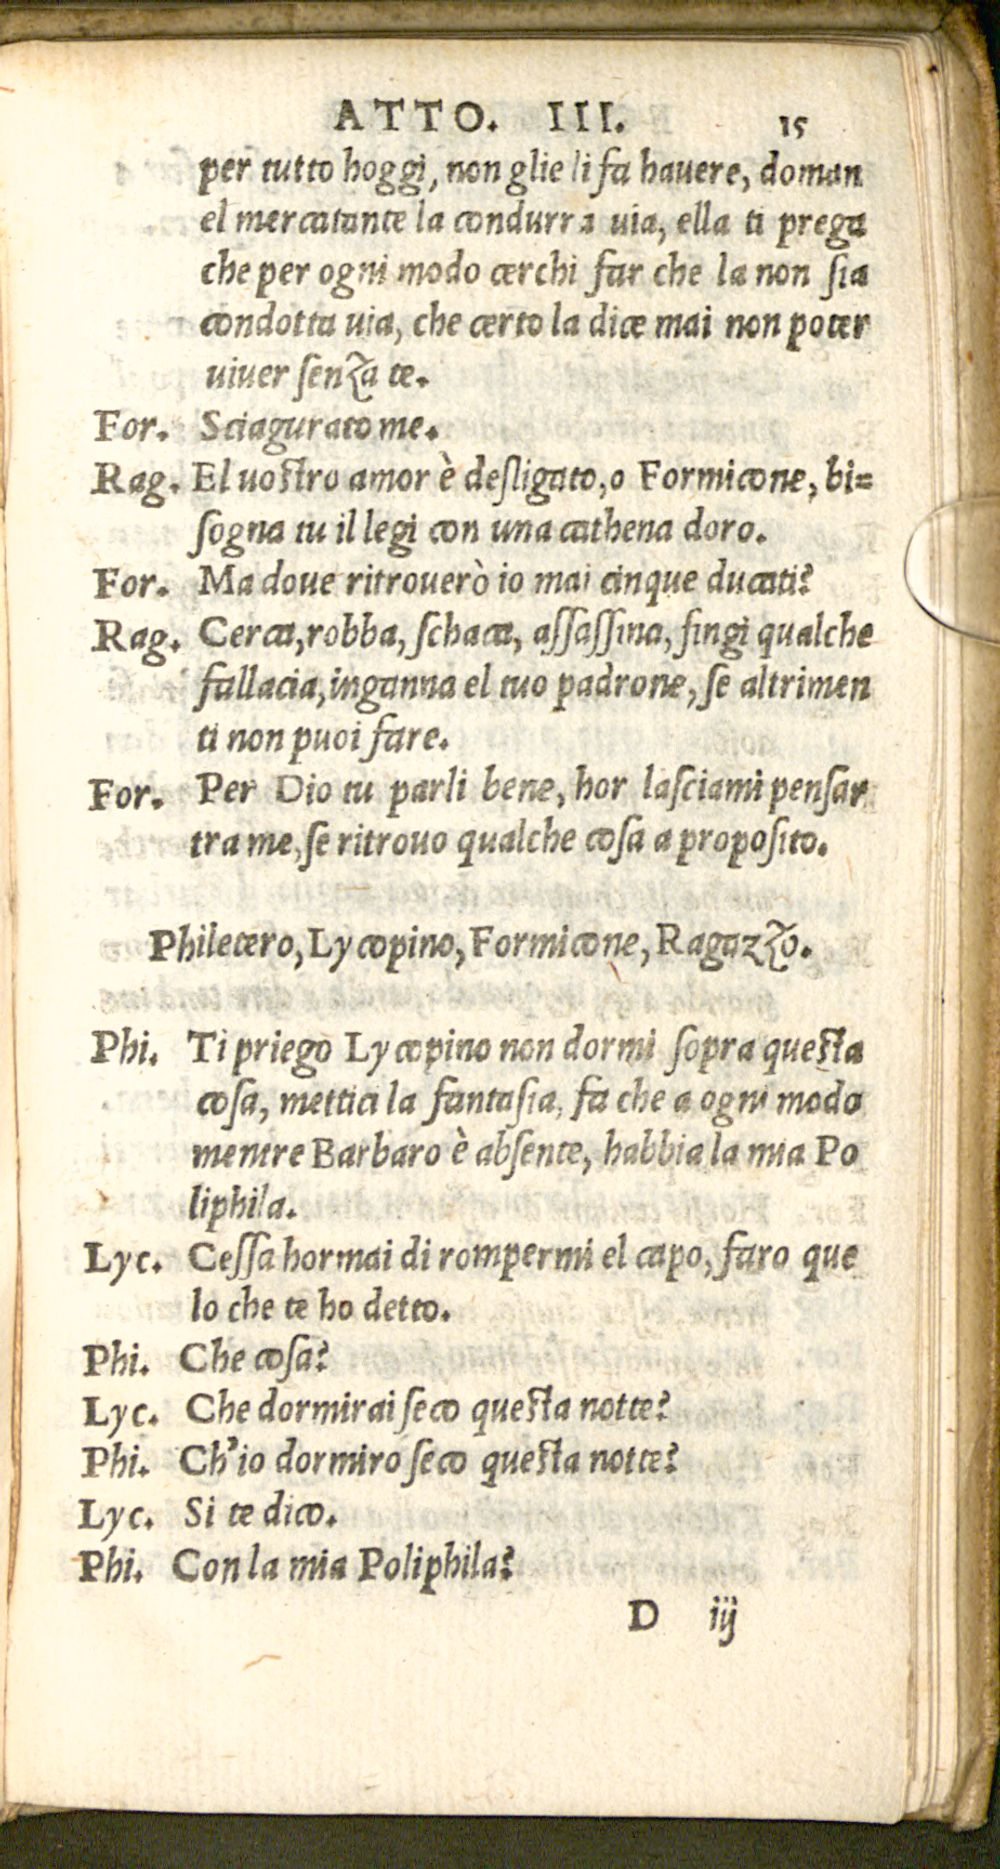 ATTO. III. 15
per tutto hoggi, non glie li fa hauere, doman
el mercatante la condurra uia, ella ti prega
che per ogni modo cerchi far che la non ſia
condotta uia, che certo la dice mai non poter
uiuer ſenza te.
For. Sciagurato me.
Rag. El uoſtro amor è deſligato, o Formicone, bi=
ſogna tu il legi con una cathena doro.
For. Ma doue ritrouerò io mai cinque ducati?
Rag. Cerca, robba, ſchaca, aſſaſſina, fingi qualche
fallacia, inganna el tuo padrone, ſe altrimen
ti non puoi fare.
For. Per Dio tu parli bene, hor laſciami penſar
tra me, ſe ritrouo qualche coſa a propoſito.
Philetero, Lycopino, Formicone, Ragazzo.
Phi. Ti priego Lycopino non dormi ſopra queſta
coſa, mettici la fantaſia, fa che a ogni modo
mentre Barbaro è abſente, habbia la mia Po
liphila.
Lyc. Ceſſa hormai di rompermi el capo, faro que
lo che te ho detto.
Phi. Che coſa?
Lyc. Che dormirai ſeco queſta notte?
Phi. Ch'io dormiro ſeco queſta notte?
Lyc. Si te dico.
Phi. Con la mia Poliphila?
D iij